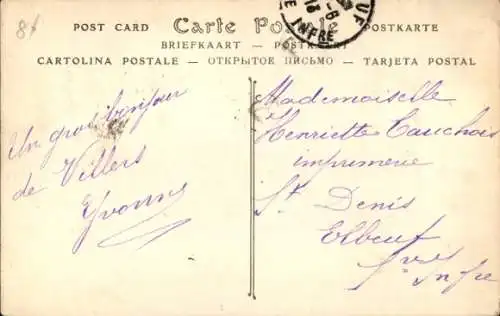 8f
POST CARD Carte Postale POSTKARTE
BRIEFKAART — POSTKAART
CARTOLINA POSTALE — ОТКРЫТОЕ ПИСЬМО — TARJETA POSTAL
UF
E INFRE
Un gros bonjour
de Villers
Yvonne
Mademoiselle
Henriette Cauchois
imprimerie
St Denis
Elbeuf
Sne Infre